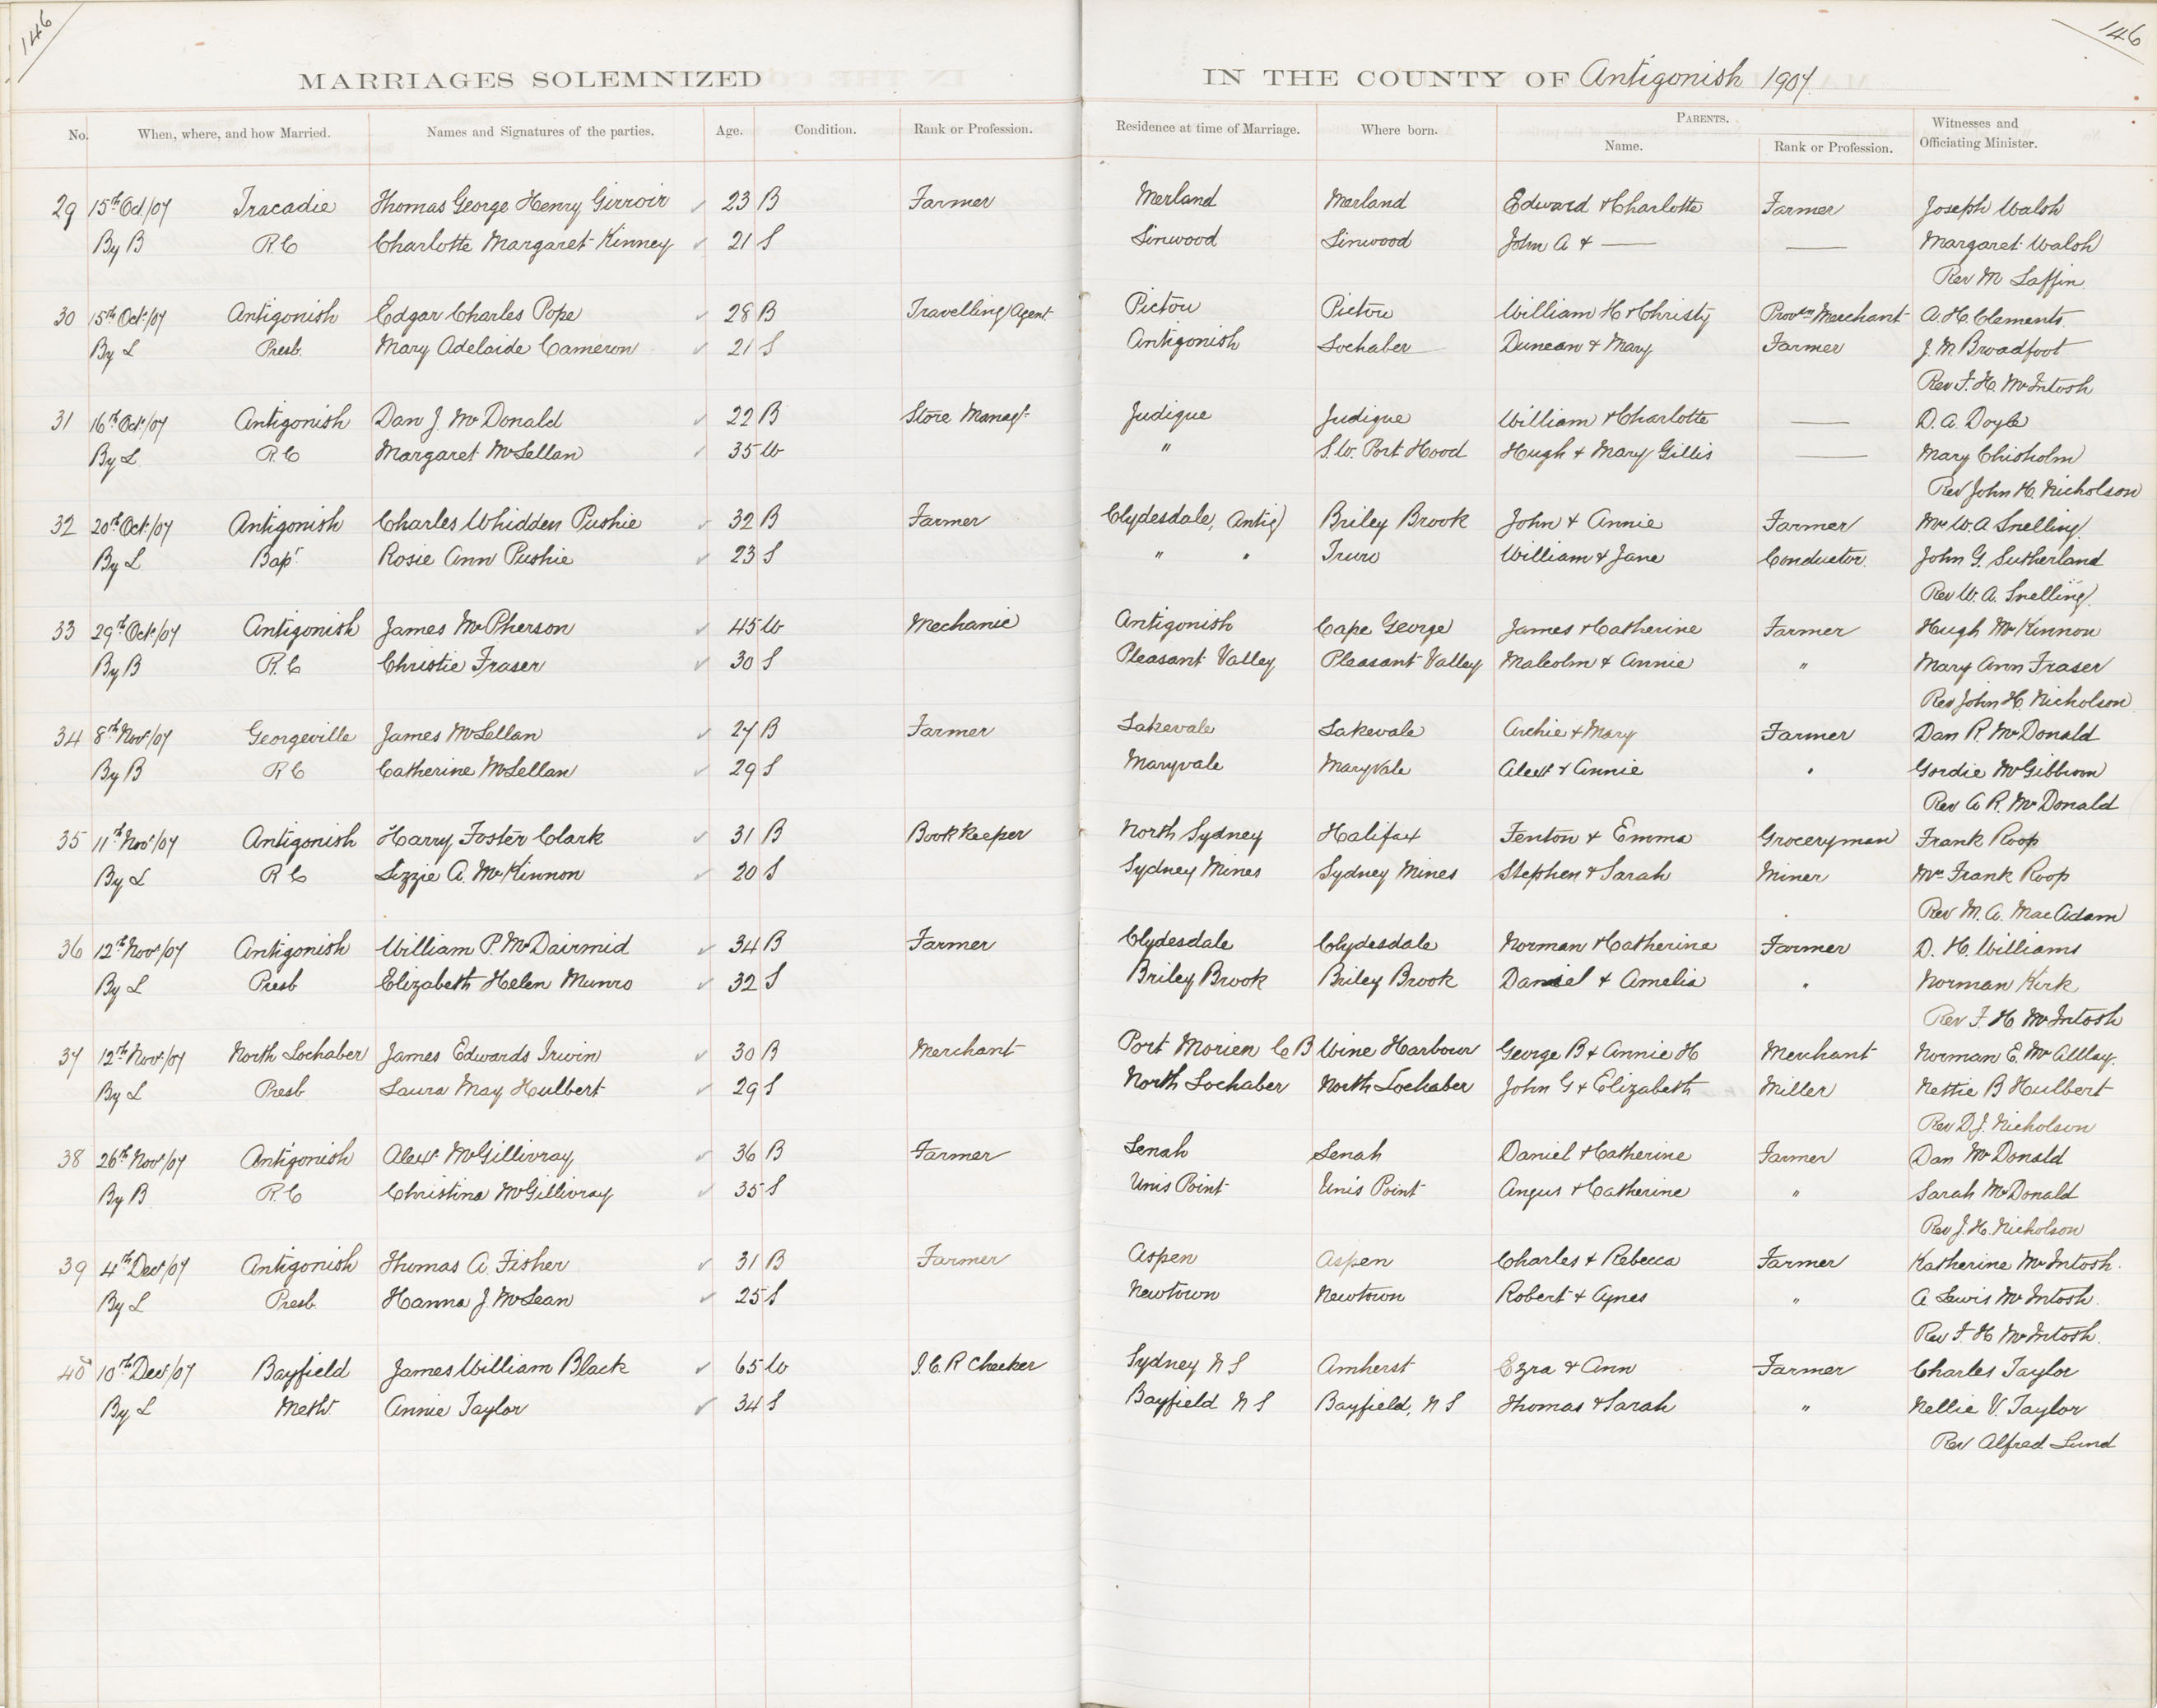 146
146
MARRIAGES SOLEMNIZED IN THE COUNTY OF Antigonish 1907.
No. When, where, and how Married. Names and Signatures of the parties. Age. Condition. Rank or Profession. Residence at time of Marriage. Where born. PARENTS. Name. Rank or Profession. Witnesses and Officiating Minister.
29 15th Oct/07 Tracadie Thomas George Henry Girroir ✓ 23 B Farmer Merland Merland Edward & Charlotte Farmer Joseph Walsh
By B R.C Charlotte Margaret Kinney ✓ 21 S Linwood Linwood John A & — — Margaret Walsh
Rev M Laffin
30 15th Oct/07 Antigonish Edgar Charles Pope ✓ 28 B Travelling Agent Pictou Pictou William H & Christy Provn Merchant A. H. Clements
By L Presb. Mary Adelaide Cameron ✓ 21 S Antigonish Lochaber Duncan & Mary Farmer J. M. Broadfoot
Rev F. H. McIntosh
31 16th Oct/07 Antigonish Dan J. McDonald ✓ 22 B Store Manag. Judique Judique William & Charlotte — D. A. Doyle
By L R.C Margaret McLellan ✓ 35 W " S.W. Port Hood Hugh & Mary Gillis — Mary Chisholm
Rev John H. Nicholson
32 20th Oct/07 Antigonish Charles Whidden Pushie ✓ 32 B Farmer Clydesdale, Antig Briley Brook John & Annie Farmer Mr W. A Snelling
By L Bapt. Rosie Ann Pushie ✓ 23 S " " Truro William & Jane Conductor John G. Sutherland
Rev W. A. Snelling
33 29th Oct/07 Antigonish James McPherson ✓ 45 W Mechanic Antigonish Cape George James & Catherine Farmer Hugh McKinnon
By B R.C Christie Fraser ✓ 30 S Pleasant Valley Pleasant Valley Malcolm & Annie " Mary Ann Fraser
Rev John H. Nicholson
34 8th Nov/07 Georgeville James McLellan ✓ 27 B Farmer Lakevale Lakevale Archie & Mary Farmer Dan R. McDonald
By B R C Catherine McLellan ✓ 29 S Maryvale Maryvale Alex & Annie " Gordie McGibbon
Rev A R. McDonald
35 11th Nov/07 Antigonish Harry Foster Clark ✓ 31 B Book Keeper North Sydney Halifax Fenton & Emma Groceryman Frank Roop
By L R C Lizzie A. McKinnon ✓ 20 S Sydney Mines Sydney Mines Stephen & Sarah Miner Mrs Frank Roop
Rev M. A. MacAdam
36 12th Nov/07 Antigonish William P. McDairmid ✓ 34 B Farmer Clydesdale Clydesdale Norman & Catherine Farmer D. H. Williams
By L Presb Elizabeth Helen Munro ✓ 32 S Briley Brook Briley Brook Daniel & Amelia " Norman Kirk
Rev F. H McIntosh
37 12th Nov/07 North Lochaber James Edwards Irwin ✓ 30 B Merchant Port Morien C B Wine Harbour George B & Annie H Merchant Norman E.
By L Presb Laura May Hulbert ✓ 29 S North Lochaber North Lochaber John G & Elizabeth Miller Nettie B Hulbert
Rev D. J. Nicholson
38 26th Nov/07 Antigonish Alex McGillivray ✓ 36 B Farmer Lenah Lenah Daniel & Catherine Farmer Dan McDonald
By B R.C Christina McGillivray ✓ 35 S Unis Point Unis Point Angus & Catherine " Sarah McDonald
Rev J. H. Nicholson
39 4th Dec/07 Antigonish Thomas A. Fisher ✓ 31 B Farmer Aspen Aspen Charles & Rebecca Farmer Katherine McIntosh
By L Presb Hanna J. McLean ✓ 25 S Newtown Newtown Robert & Agnes " A Lewis McIntosh
Rev F. H McIntosh
40 10th Dec/07 Bayfield James William Black ✓ 65 W I. C. R Checker Sydney N S Amherst Ezra & Ann Farmer Charles Taylor
By L Meth Annie Taylor ✓ 34 S Bayfield N S Bayfield, N S Thomas & Sarah " Nellie V. Taylor
Rev Alfred Lund